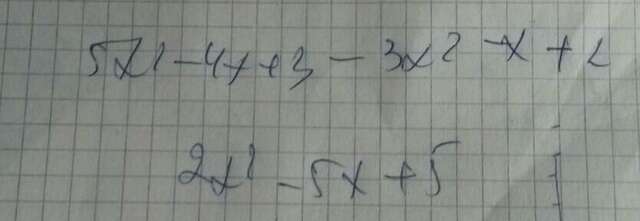 5x² - 4x + 3 - 3x² - x + 2
2x² - 5x + 5